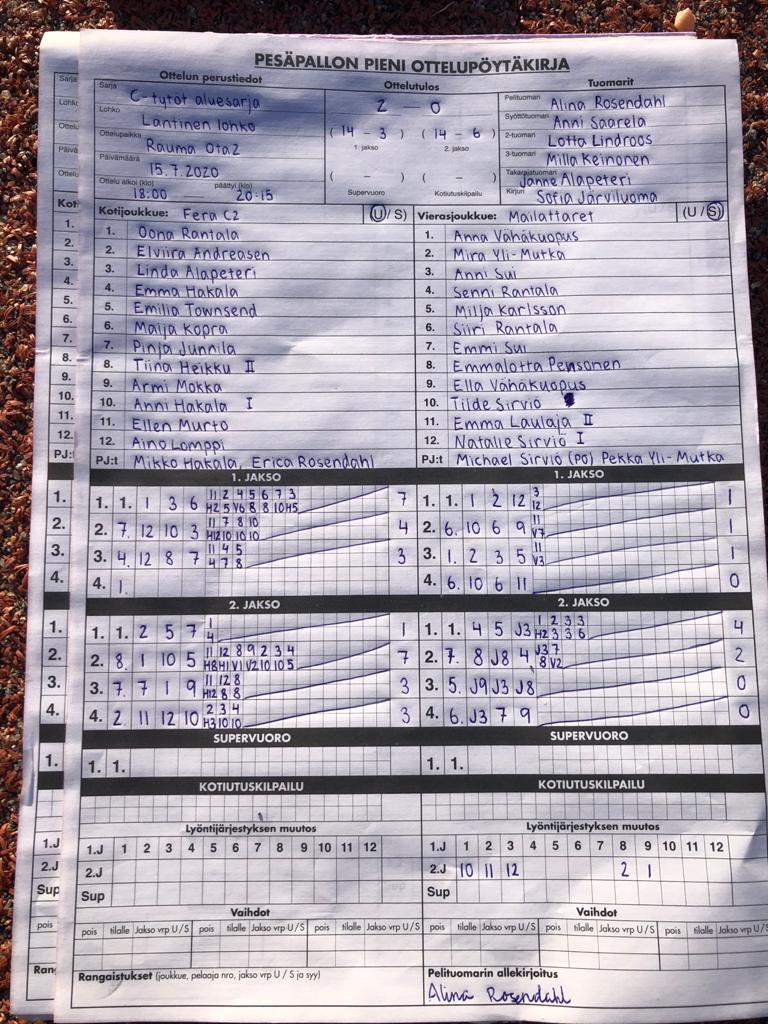 PESÄPALLON PIENI OTTELUPÖYTÄKIRJA
Ottelun perustiedot Ottelutulos Tuomarit
Sarja C-tytöt aluesarja 2 — 0 Pelituomari Alina Rosendahl
Lohko Läntinen lohko Syöttötuomari Anni Saarela
Ottelupaikka Rauma Ota2 (14 – 3) (14 – 6) 2-tuomari Lotta Lindroos
1. jakso 2. jakso 3-tuomari Milla Keinonen
Päivämäärä 15.7.2020 ( – ) ( – ) Takarajatuomari Janne Alapeteri
Ottelu alkoi (klo) 18:00 päättyi (klo) 20:15 Supervuoro Kotiutuskilpailu Kirjuri Sofia Järviluoma
Kotijoukkue: Fera C2 (U/S) Vierasjoukkue: Mailattaret (U/S)
1. Oona Rantala 1. Anna Vähäkuopus
2. Elviira Andreasen 2. Mira Yli-Mutka
3. Linda Alapeteri 3. Anni Sui
4. Emma Hakala 4. Senni Rantala
5. Emilia Townsend 5. Milja Karlsson
6. Maija Kopra 6. Siiri Rantala
7. Pinja Junnila 7. Emmi Sui
8. Tiina Heikku II 8. Emmalotta Pensonen
9. Armi Mokka 9. Ella Vähäkuopus
10. Anni Hakala I 10. Tilde Sirviö
11. Ellen Murto 11. Emma Laulaja II
12. Aino Lomppi 12. Natalie Sirviö I
PJ:t Mikko Hakala, Erica Rosendahl PJ:t Michael Sirviö (PO) Pekka Yli-Mutka
1. JAKSO 1. JAKSO
1. 1. 1 3 6 11 2 4 5 6 7 3 7 1. 1. 1 2 12 3 1
H2 5 V6 8 8 10 H5 12
2. 7. 12 10 3 11 7 8 10 4 2. 6. 10 6 9 11 1
H12 10 10 10 V7
3. 4. 12 8 7 11 4 5 3 3. 1. 2 3 5 11 1
4 7 8 V3
4. 1. 4. 6. 10 6 11 0
2. JAKSO 2. JAKSO
1. 1. 2 5 7 1 1 1. 1. 4 5 J3 1 2 3 3 4
4 H2 3 3 6
2. 8. 1 10 5 11 12 8 9 2 3 4 7 2. 7. 8 J8 4 J3 7 2
H8 H1 V1 V2 10 10 5 8 V2
3. 7. 7 1 9 11 12 8 3 3. 5. J9 J3 J8 0
H12 8 8
4. 2. 11 12 10 2 3 4 3 4. 6. J3 7 9 0
H3 10 10
SUPERVUORO SUPERVUORO
1. 1. 1. 1.
KOTIUTUSKILPAILU KOTIUTUSKILPAILU
Lyöntijärjestyksen muutos Lyöntijärjestyksen muutos
1.J 1 2 3 4 5 6 7 8 9 10 11 12 1.J 1 2 3 4 5 6 7 8 9 10 11 12
2.J 2.J 10 11 12 2 1
Sup Sup
Vaihdot Vaihdot
pois tilalle Jakso vrp U/S pois tilalle Jakso vrp U/S pois tilalle Jakso vrp U/S pois tilalle Jakso vrp U/S pois tilalle Jakso vrp U/S pois tilalle Jakso vrp U/S
Rangaistukset (joukkue, pelaaja nro, jakso vrp U / S ja syy) Pelituomarin allekirjoitus
Alina Rosendahl